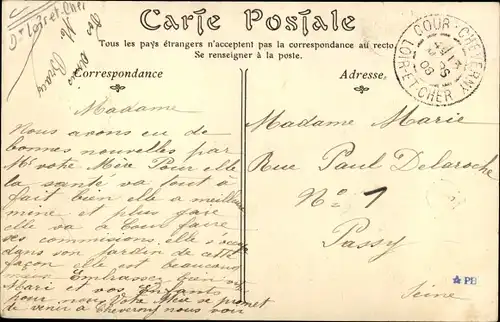 Dt Loir et Cher
Carte Postale
Tous les pays étrangers n'acceptent pas la correspondance au recto
Se renseigner à la poste.
Correspondance
Adresse
COUR-CHEVERNY
LOIR-ET-CHER
Madame
Nous avons eu de
bonnes nouvelles par
Mr votre Mère Pour elle
la santé va tout à
fait bien elle a meilleure
mine et plus faire
elle va à Cour faire
ses commisions. elle s'occupe
dans son Jardin de cette
façon elle est beaucoup
mieux Embrassez bien votre
Mari et vos Enfants
pour nous Votre Mère se promet
de venir à Cheverny nous voir
Madame Marie
Rue Paul Delaroche
No 7
Passy
Seine
PB